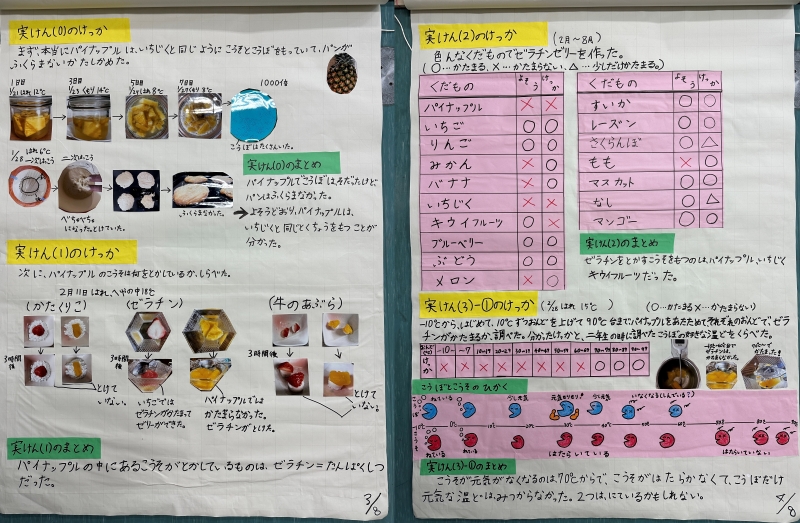 実けん(0)のけっか
まず、本当にパイナップルは、いちじくと同じようにこうそとこうぼをもっていて、パンが
ふくらまないかたしかめた。
1日目
1/21 はれ 12℃
3日目
5日目
7日目
1000倍
こうぼはたくさんいた。
1/28 はれ 6℃
一次はっこう
二次はっこう
べちゃべちゃ
になった。とけていた。
ふくらまなかった。
実けん(0)のまとめ
パイナップルでこうぼは、そだったけど
パンはふくらまなかった。
→よそうどおり、パイナップルは、
いちじくと同じとくちょうをもつことが
分かった。
実けん(1)のけっか
次に、パイナップルのこうそは何をとかしているか、しらべた。
2月11日 はれ、へやの中18℃
(かたくりこ)
(ゼラチン)
(牛のあぶら)
3時間後
とけて
いない。
3時間後
いちごでは
ゼラチンがかたまって
ゼリーができた。
パイナップルでは
かたまらなかった。
ゼラチンがとけた。
3時間後
とけて
いない。
実けん(1)のまとめ
パイナップルの中にあるこうそがとかしているものは、ゼラチン=たんぱくしつ
だった。
3/8
実けん(2)のけっか
(2月~8月)
色んなくだものでゼラチンゼリーを作った。
(○…かたまる、×…かたまらない、△…少しだけかたまる。)
くだもの よそう けっか
パイナップル × ×
いちご ○ ○
りんご ○ ○
みかん × ○
バナナ × ○
いちじく × ×
キウイフルーツ ○ ×
ブルーベリー ○ ○
ぶどう ○ ○
メロン × ○
くだもの よそう けっか
すいか ○ ○
レーズン ○ ○
さくらんぼ ○ △
もも × ○
マスカット ○ ○
なし ○ △
マンゴー ○ ○
実けん(2)のまとめ
ゼラチンをとかすこうそをもつのは、パイナップル、いちじく
キウイフルーツだった。
実けん(3)-①のけっか
はれ 15℃)
(○…かたまる ×…かたまらない)
-10℃から、はじめて、10℃ずつおんどを上げて90℃台までパイナップルをあたためてそれぞれのおんどで、ゼラ
チンがかたまるか、調べた。分かったけっかと、二年生の時に調べたこうぼの好きな温どをくらべた。
× × × × × × × × ○ ○ ○
こうぼとこうそのひかく
ねている
少し元気
元気モリモリ!
少し元気
いなくなる(しんでいる?)
ねている
ねている
はたらいている
はたらいていない
実けん(3)-①のまとめ
こうそが元気がなくなるのは、70℃からで、こうそがはたらかなくて、こうぼだけ
元気な温どは、みつからなかった。2つは、にているかもしれない。
4/8